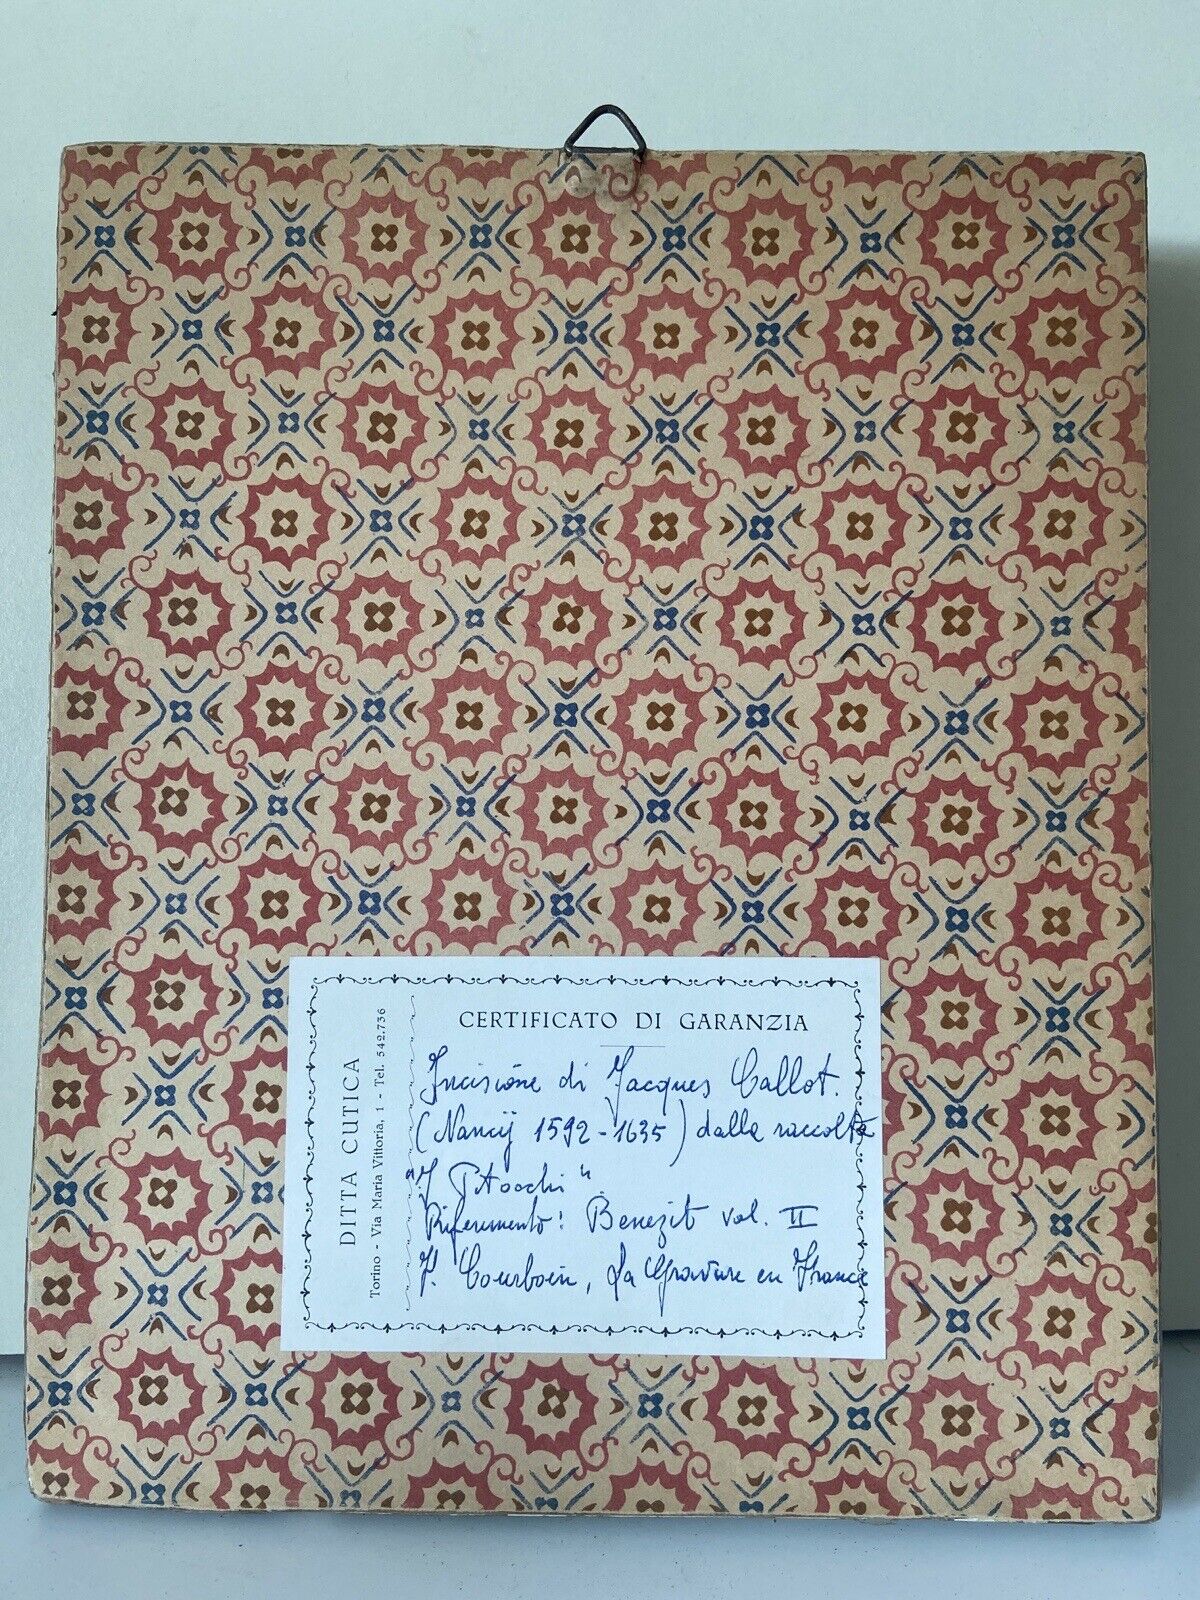 DITTA CUTICA
Torino - Via Maria Vittoria, 1 - Tel. 542.736
CERTIFICATO DI GARANZIA
Incisione di Jacques Callot.
(Nancÿ 1592-1635) dalla raccolta
"I Pitocchi"
Riferimento: Benezit vol. II
F. Courboin, La Gravure en France